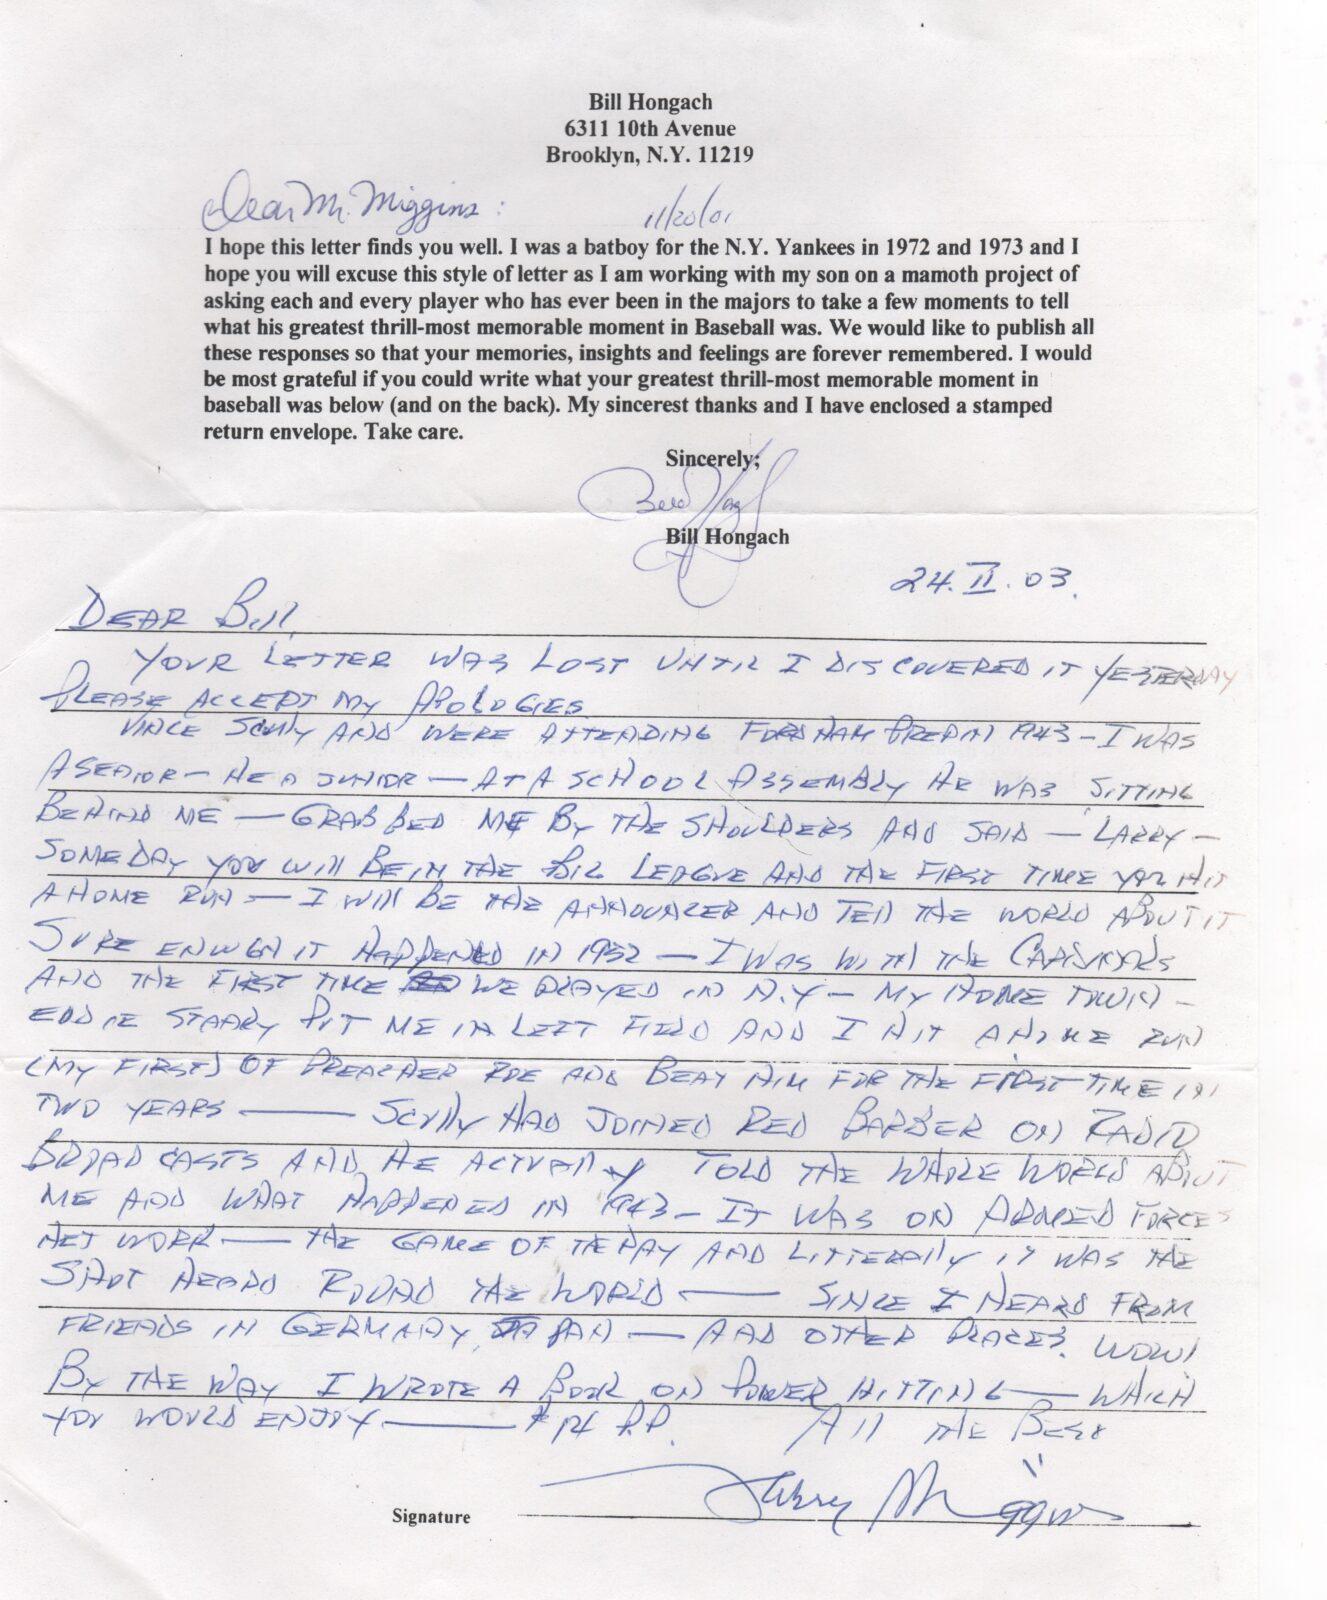 Bill Hongach
6311 10th Avenue
Brooklyn, N.Y. 11219
Dear Mr. Miggins: 11/20/01
I hope this letter finds you well. I was a batboy for the N.Y. Yankees in 1972 and 1973 and I
hope you will excuse this style of letter as I am working with my son on a mamoth project of
asking each and every player who has ever been in the majors to take a few moments to tell
what his greatest thrill-most memorable moment in Baseball was. We would like to publish all
these responses so that your memories, insights and feelings are forever remembered. I would
be most grateful if you could write what your greatest thrill-most memorable moment in
baseball was below (and on the back). My sincerest thanks and I have enclosed a stamped
return envelope. Take care.
Sincerely;
Bill Hongach
24.II.03.
DEAR Bill,
YOUR LETTER WAS LOST UNTIL I DISCOVERED IT YESTERDAY
PLEASE ACCEPT MY APOLOGIES
VINCE SCULLY AND WERE ATTENDING FORDHAM PREP IN 1943 - I WAS
A SENIOR - HE A JUNIOR - AT A SCHOOL ASSEMBLY HE WAS SITTING
BEHIND ME - GRABBED ME BY THE SHOULDERS AND SAID - LARRY -
SOMEDAY YOU WILL BE IN THE BIG LEAGUE AND THE FIRST TIME YOU HIT
A HOME RUN - I WILL BE THE ANNOUNCER AND TELL THE WORLD ABOUT IT
SURE ENOUGH IT HAPPENED IN 1952 - I WAS WITH THE CARDINALS
AND THE FIRST TIME WE PLAYED IN N.Y - MY HOME TOWN -
EDDIE STANKY PUT ME IN LEFT FIELD AND I HIT A HOME RUN
(MY FIRST) OF PREACHER ROE AND BEAT HIM FOR THE FIRST TIME IN
TWO YEARS - SCULLY HAD JOINED RED BARBER ON RADIO
BROADCASTS AND HE ACTUALLY TOLD THE WHOLE WORLD ABOUT
ME AND WHAT HAPPENED IN 1943 - IT WAS ON ARMED FORCES
NETWORK - THE GAME OF THE DAY AND LITTERALLY IT WAS THE
SHOT HEARD ROUND THE WORLD - SINCE I HEARD FROM
FRIENDS IN GERMANY, JAPAN - AND OTHER PLACES. WOW!
BY THE WAY I WROTE A BOOK ON POWER HITTING - WHICH
YOU WOULD ENJOY - $14 P.P. All THE BEST
Signature Larry Miggins